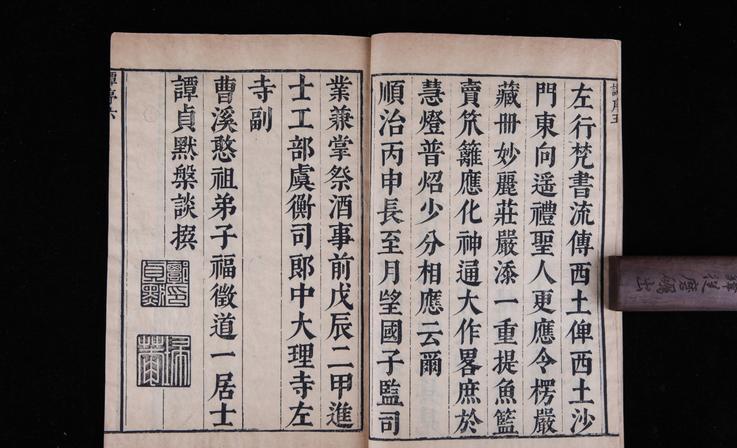 左行梵書流傳西土俾西土沙
門東向遥禮聖人更應令楞嚴
藏冊妙麗莊嚴添一重提魚籃
賣笊籬應化神通大作畧庶於
慧燈普炤少分相應云爾
順治丙申長至月望國子監司
業兼掌祭酒事前戊辰二甲進
士工部虞衡司郎中大理寺左
寺副
曹溪憨祖弟子福徵道一居士
譚貞默槃談撰
譚序六